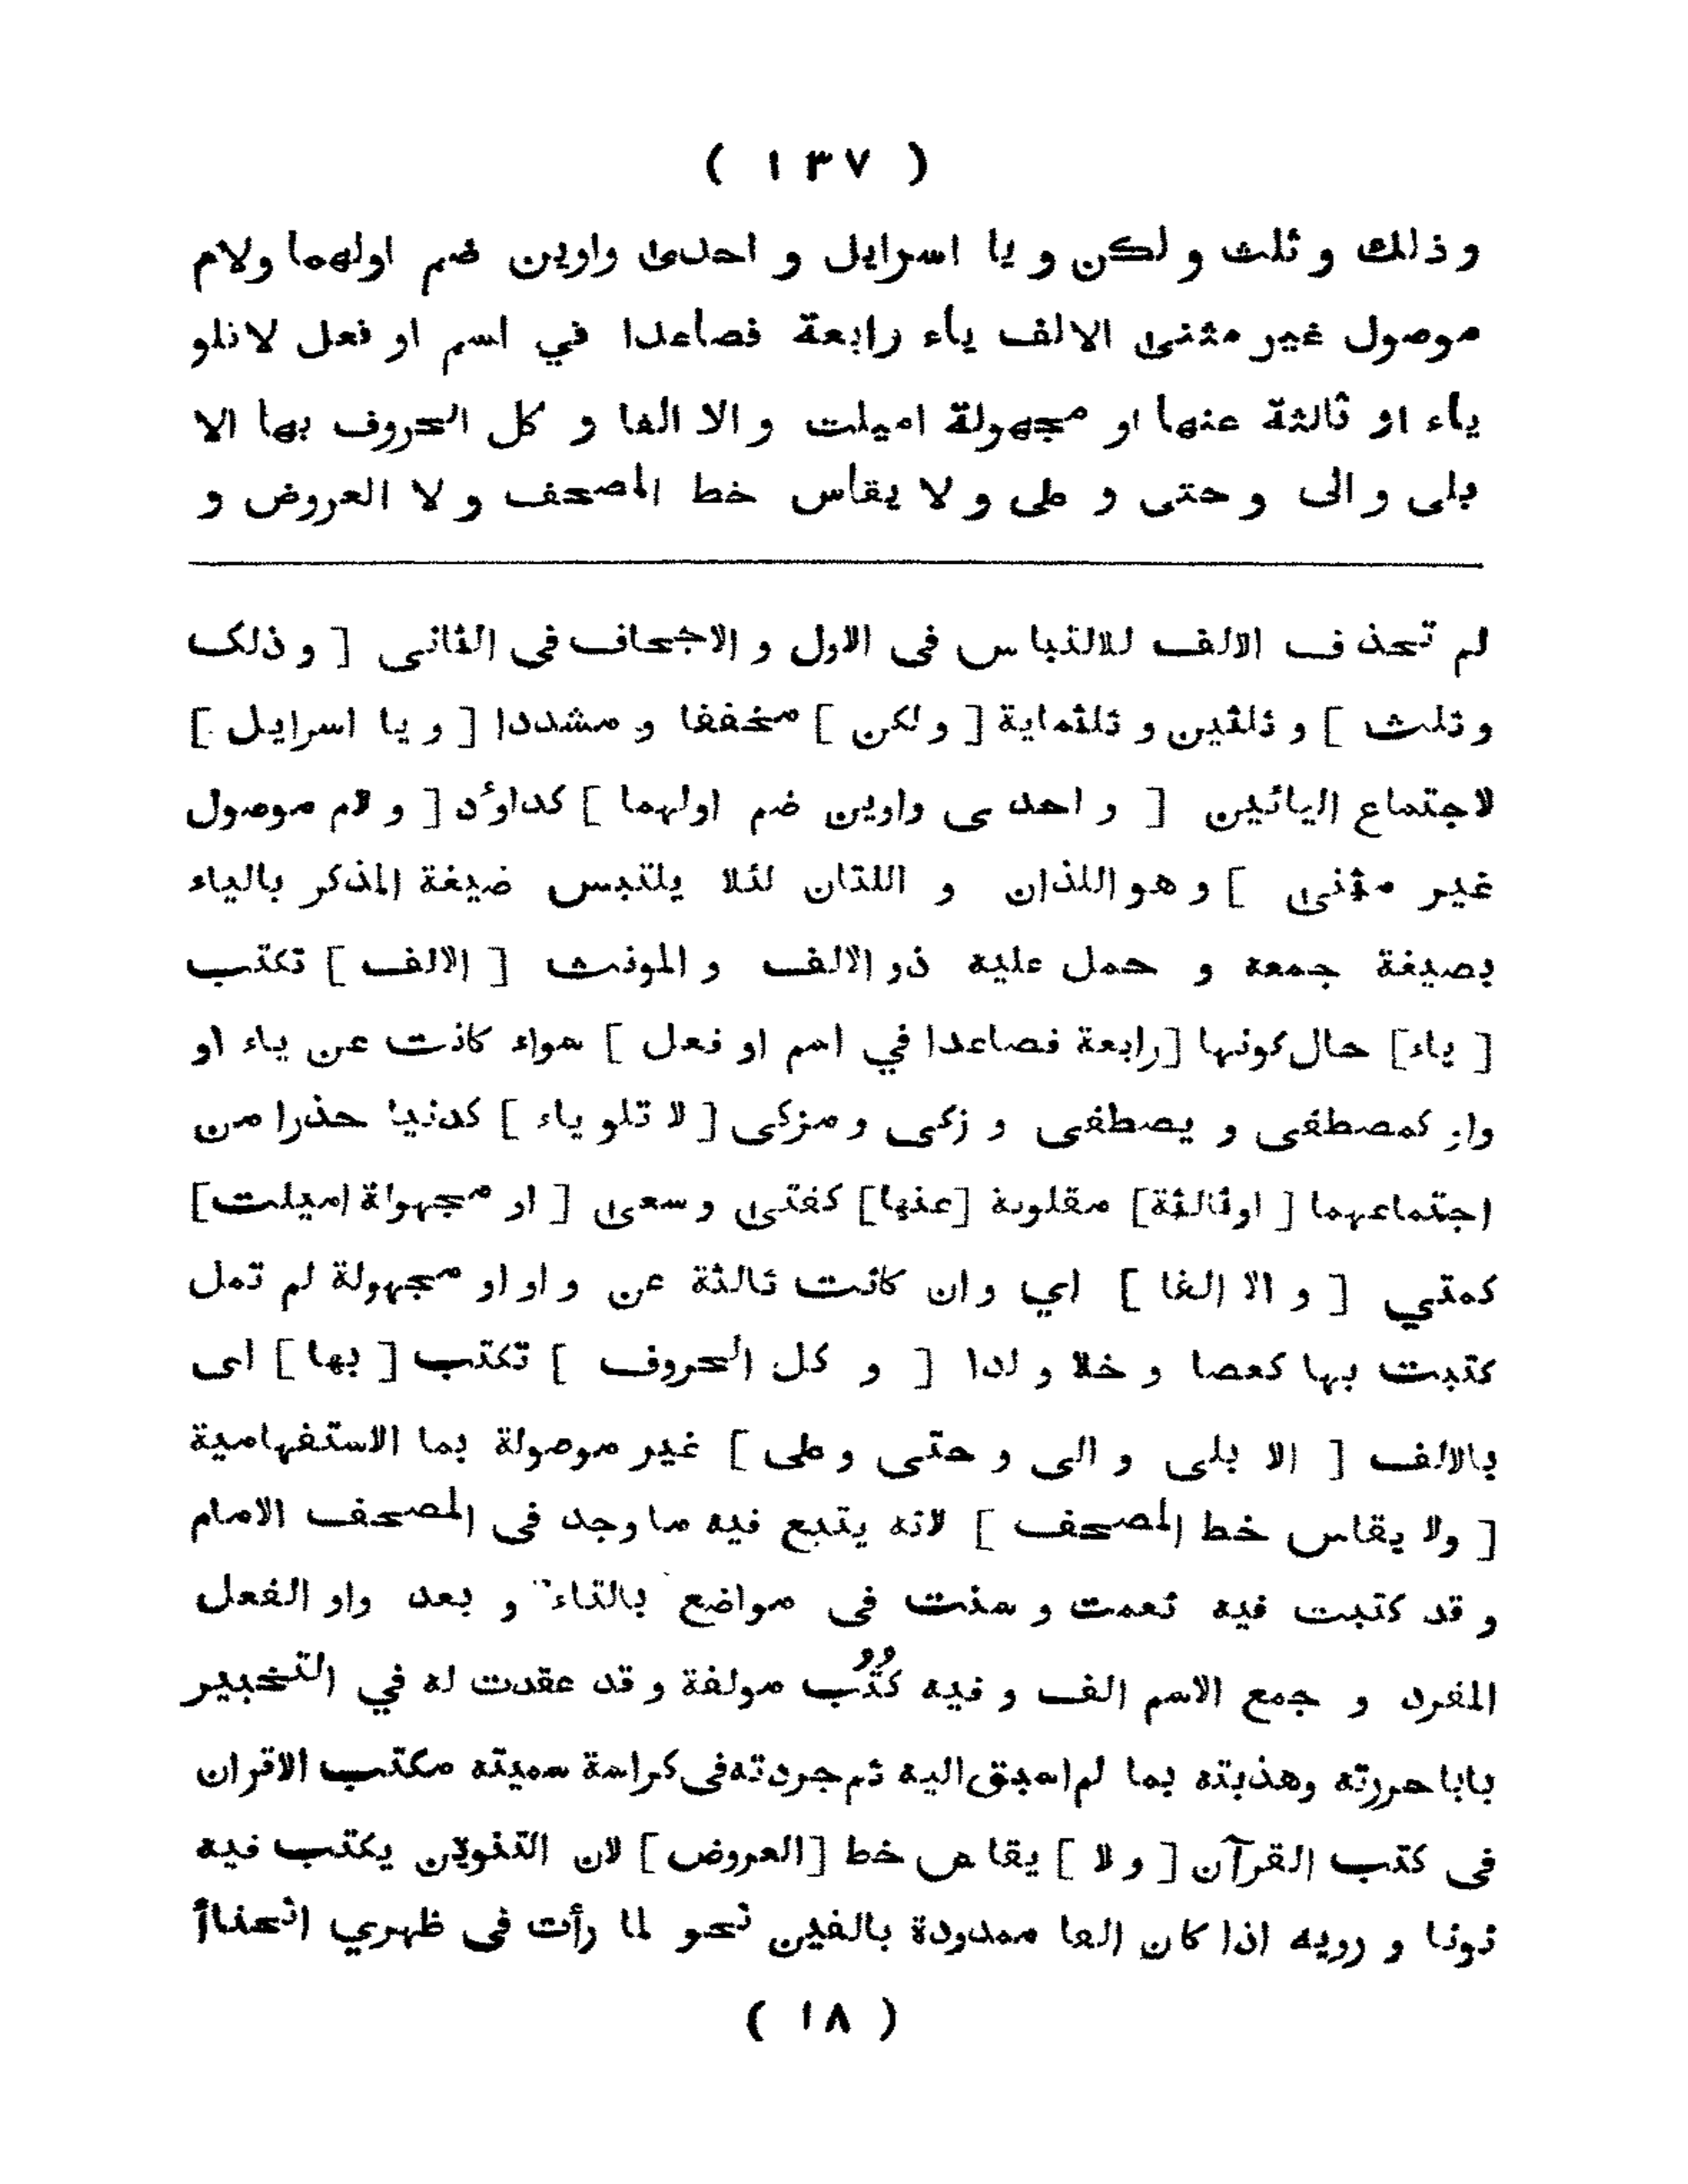 ( ١٣٧ )
و ذلك و ثلث و لكن و يا اسرايل و احدى واوين ضم اولهما ولام
موصول غير مثنى الالف ياء رابعة فصاعدا في اسم او فعل لاتلو
ياء او ثالثة عنها او مجهولة اميلت و الا الفا و كل الحروف بها الا
بلى و الى و حتى و على و لا يقاس خط المصحف و لا العروض و
لم تحذف الالف للالتباس فى الاول و الاجحاف فى الثانى [ و ذلك
و ثلث ] و ثلثين و ثلثماية [ و لكن ] مخففا و مشددا [ و يا اسرايل ]
لاجتماع اليائين [ و احدى واوين ضم اولهما ] كداوُد [ و لام موصول
غير مثنى ] و هو اللذان و اللتان لئلا يلتبس ضيغة المذكر بالياء
بصيغة جمعه و حمل عليه ذو الالف و المونث [ الالف ] تكتب
[ ياء ] حال كونها [ رابعة فصاعدا في اسم او فعل ] سواء كانت عن ياء او
واو كمصطفى و يصطفى و زكى و مزكى [ لا تلو ياء ] كدنيا حذرا من
اجتماعهما [ او ثالثة ] مقلوبة [ عنها ] كفتى و سعى [ او مجهولة اميلت ]
كمتي [ و الا الفا ] اي و ان كانت ثالثة عن و او او مجهولة لم تمل
كتبت بها كعصا و خلا و لدا [ و كل الحروف ] تكتب [ بها ] اى
بالالف [ الا بلى و الى و حتى و على ] غير موصولة بما الاستفهامية
[ ولا يقاس خط المصحف ] لانه يتبع فيه ما وجد فى المصحف الامام
و قد كتبت فيه نعمت و سنت فى مواضع بالتاء و بعد واو الفعل
المفرد و جمع الاسم الف و فيه كُتُب مولفة و قد عقدت له في التحبير
بابا حررته وهذبته بما لم اسبق اليه ثم جردته فى كراسة سميته مكتب الاقران
فى كتب القرآن [ و لا ] يقاس خط [ العروض ] لان التنوين يكتب فيه
نونا و رويه اذا كان الفا ممدودة بالفين نحو لما رأت فى ظهري انحناأ
( ١٨ )